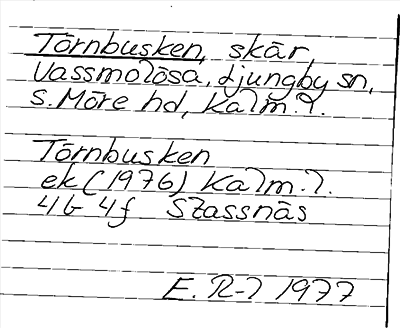 Törnbusken, skär,
Vassmolösa, Ljungby sn,
S. Möre hd, Kalm. l.
Törnbusken
ek (1976) Kalm. l.
4G 4f Slassnäs
E. R-l 1977